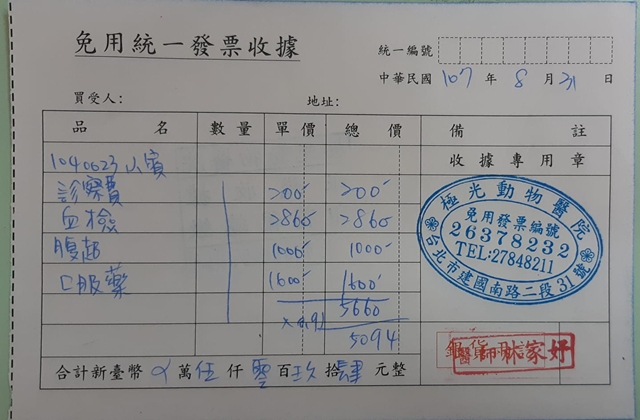 免用統一發票收據
統一編號
中華民國 107 年 8 月 31 日
買受人: 地址:
品名 數量 單價 總價 備註
收據專用章
1040623小賓
診察費 200 200
血檢 2860 2860
腹超 1000 1000
口服藥 1600 1600
5660
x0.9
5094
合計新臺幣 萬伍仟零百玖拾肆元整
極光動物醫院
免用發票編號
26378232
TEL:27848211
台北市建國南路二段31號